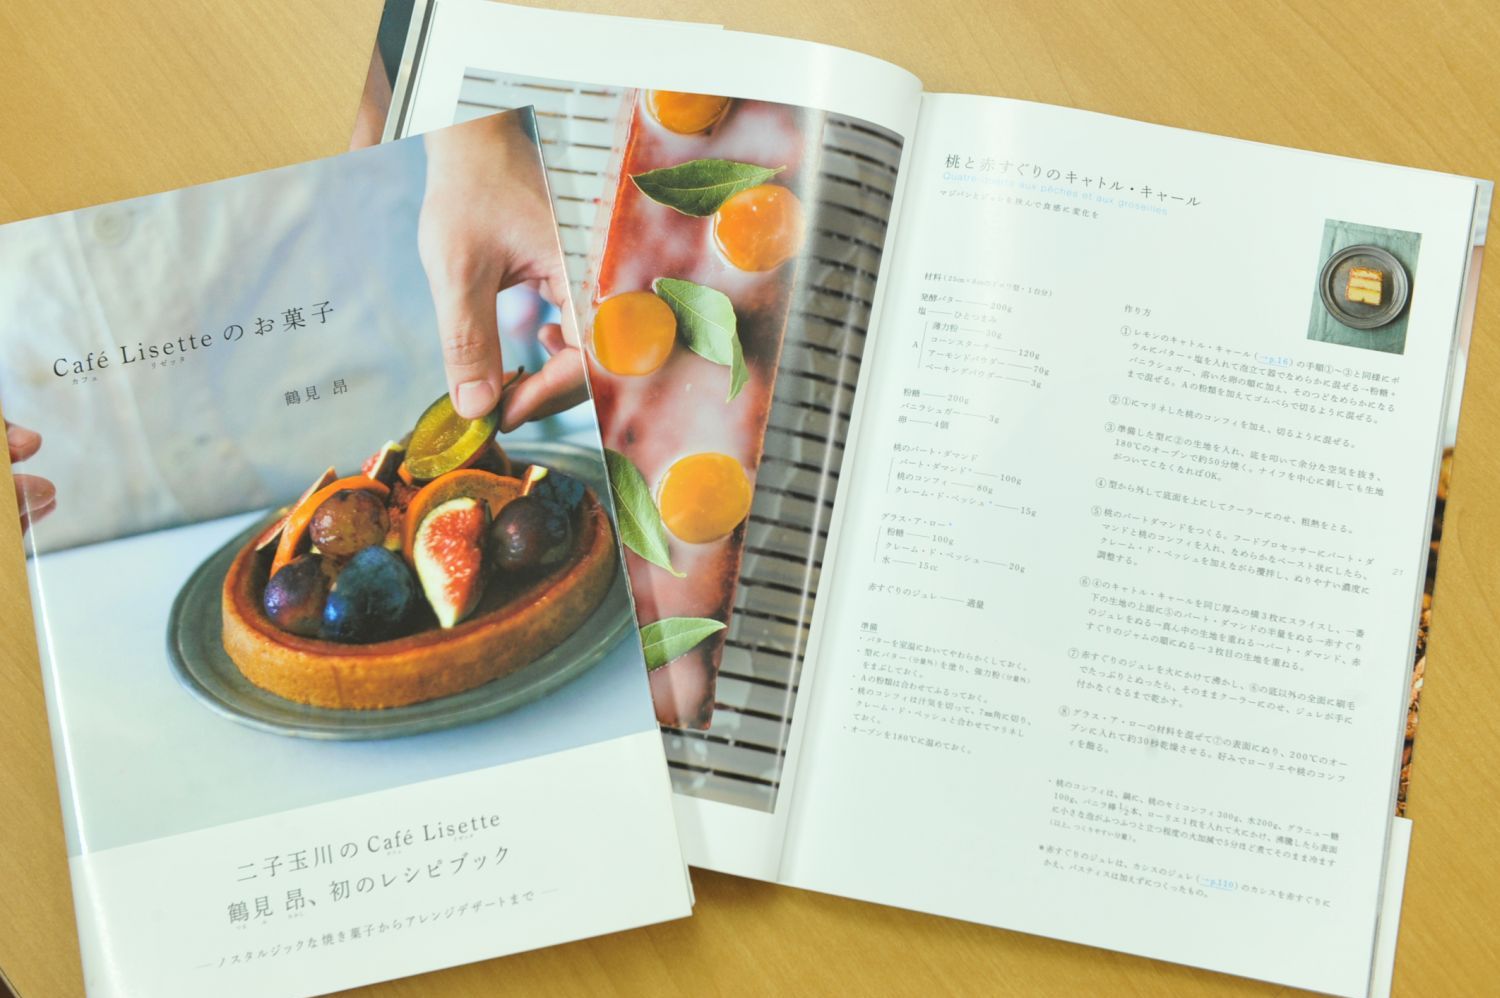 Café Lisetteのお菓子
カフェ リゼッタ
鶴見 昂
二子玉川のCafé Lisette
カフェ リゼッタ
鶴見 昂、初のレシピブック
つる み たかし
—ノスタルジックな焼き菓子からアレンジデザートまで—
桃と赤すぐりのキャトル・キャール
Quatre-quarts aux pêches et aux groseilles
マジパンとジュレを挟んで食感に変化を
材料(25cm×8cmのドメリ型・1台分)
発酵バター——200g
塩——ひとつまみ
A
薄力粉——30g
コーンスターチ——120g
アーモンドパウダー——70g
ベーキングパウダー——3g
粉糖——200g
バニラシュガー——3g
卵——4個
桃のパート・ダマンド
パート・ダマンド*——100g
桃のコンフィ——80g
クレーム・ド・ペッシュ*——15g
グラス・ア・ロー*
粉糖——100g
クレーム・ド・ペッシュ——20g
水——15cc
赤すぐりのジュレ——適量
準備
・バターを室温においてやわらかくしておく。
・型にバター(分量外)を塗り、強力粉(分量外)
をまぶしておく。
・Aの粉類は合わせてふるっておく。
・桃のコンフィは汁気を切って、7mm角に切り、
クレーム・ド・ペッシュと合わせてマリネし
ておく。
・オーブンを180℃に温めておく。
作り方
① レモンのキャトル・キャール(→p.16)の手順①〜③と同様にボ
ウルにバター+塩を入れて泡立て器でなめらかに混ぜる→粉糖+
バニラシュガー、溶いた卵の順に加え、そのつどなめらかになる
まで混ぜる。Aの粉類を加えてゴムべらで切るように混ぜる。
② ①にマリネした桃のコンフィを加え、切るように混ぜる。
③ 準備した型に②の生地を入れ、底を叩いて余分な空気を抜き、
180℃のオーブンで約50分焼く。ナイフを中心に刺しても生地
がついてこなくなればOK。
④ 型から外して底面を上にしてクーラーにのせ、粗熱をとる。
⑤ 桃のパートダマンドをつくる。フードプロセッサーにパート・ダ
マンドと桃のコンフィを入れ、なめらかなペースト状にしたら、
クレーム・ド・ペッシュを加えながら攪拌し、ぬりやすい濃度に
調整する。
⑥ ④のキャトル・キャールを同じ厚みの横3枚にスライスし、一番
下の生地の上面に⑤のパート・ダマンドの半量をぬる→赤すぐり
のジュレをぬる→真ん中の生地を重ねる→パート・ダマンド、赤
すぐりのジャムの順にぬる→3枚目の生地を重ねる。
⑦ 赤すぐりのジュレを火にかけて沸かし、⑥の底以外の全面に刷毛
でたっぷりとぬったら、そのままクーラーにのせ、ジュレが手に
付かなくなるまで乾かす。
⑧ グラス・ア・ローの材料を混ぜて⑦の表面にぬり、200℃のオー
ブンに入れて約30秒乾燥させる。好みでローリエや桃のコンフ
ィを飾る。
・桃のコンフィは、鍋に、桃のセミコンフィ300g、水200g、グラニュー糖
100g、バニラ棒1/2本、ローリエ1枚を入れて火にかけ、沸騰したら表面
に小さな泡がふつふつと立つ程度の火加減で5分ほど煮てそのまま冷ます
(以上、つくりやすい分量)。
*赤すぐりのジュレは、カシスのジュレ(→p.110)のカシスを赤すぐりに
かえ、パスティスは加えずにつくったもの。
21